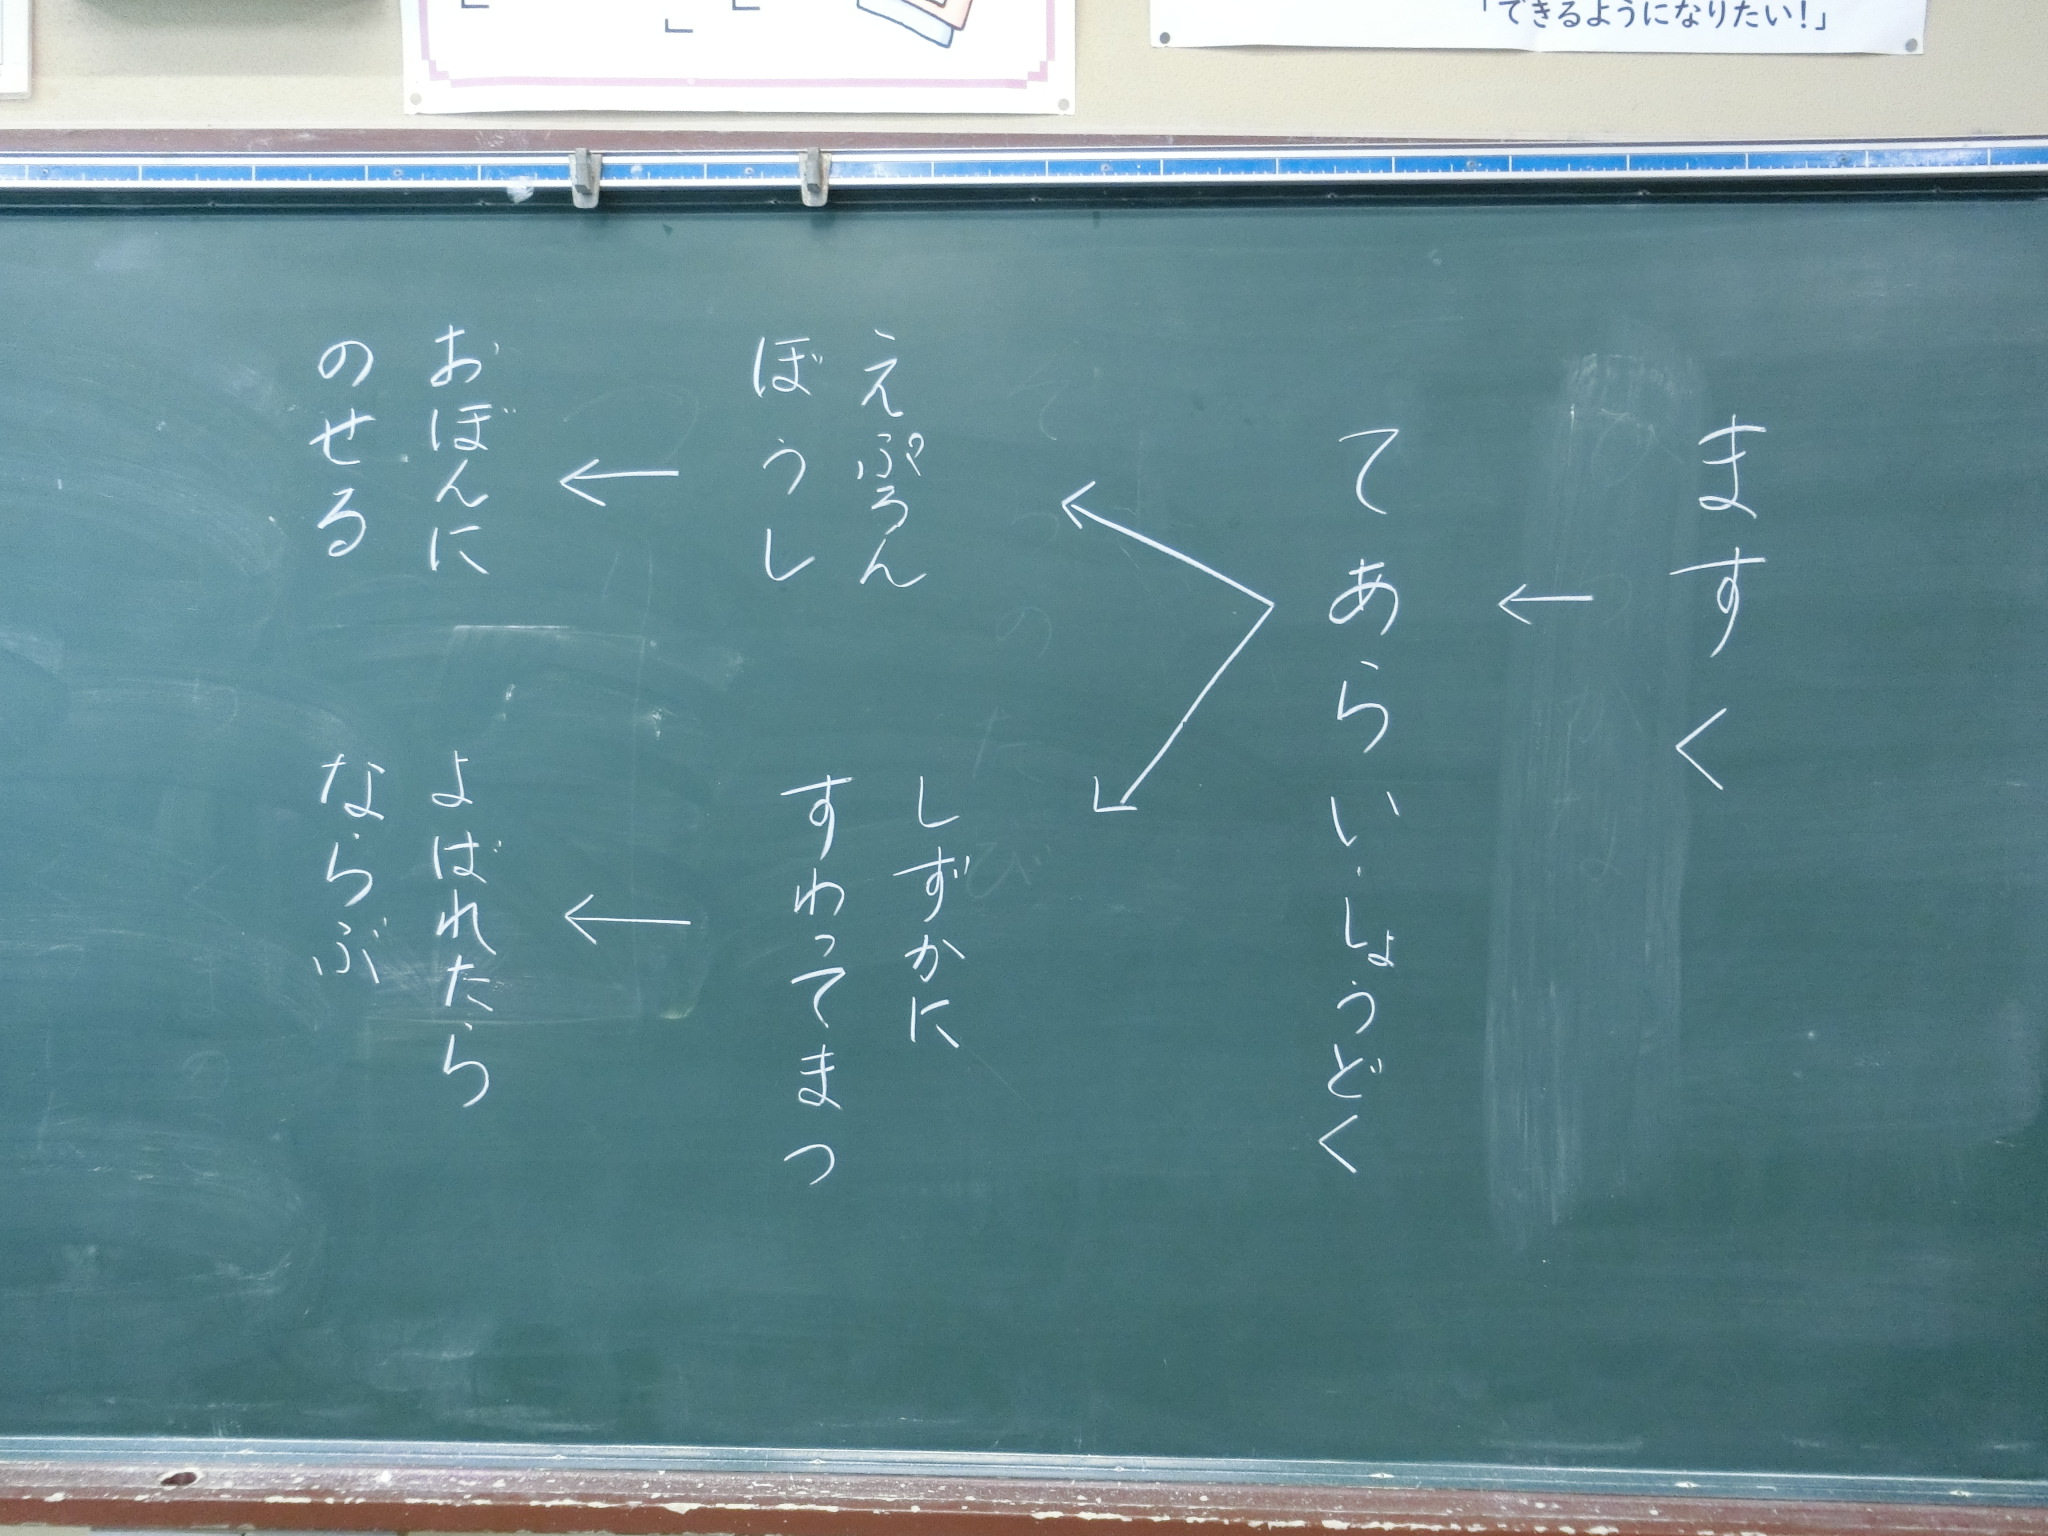 「できるようになりたい！」
ますく
←
てあらい・しょうどく
えぷろん
ぼうし
←
おぼんに
のせる
しずかに
すわってまつ
←
よばれたら
ならぶ